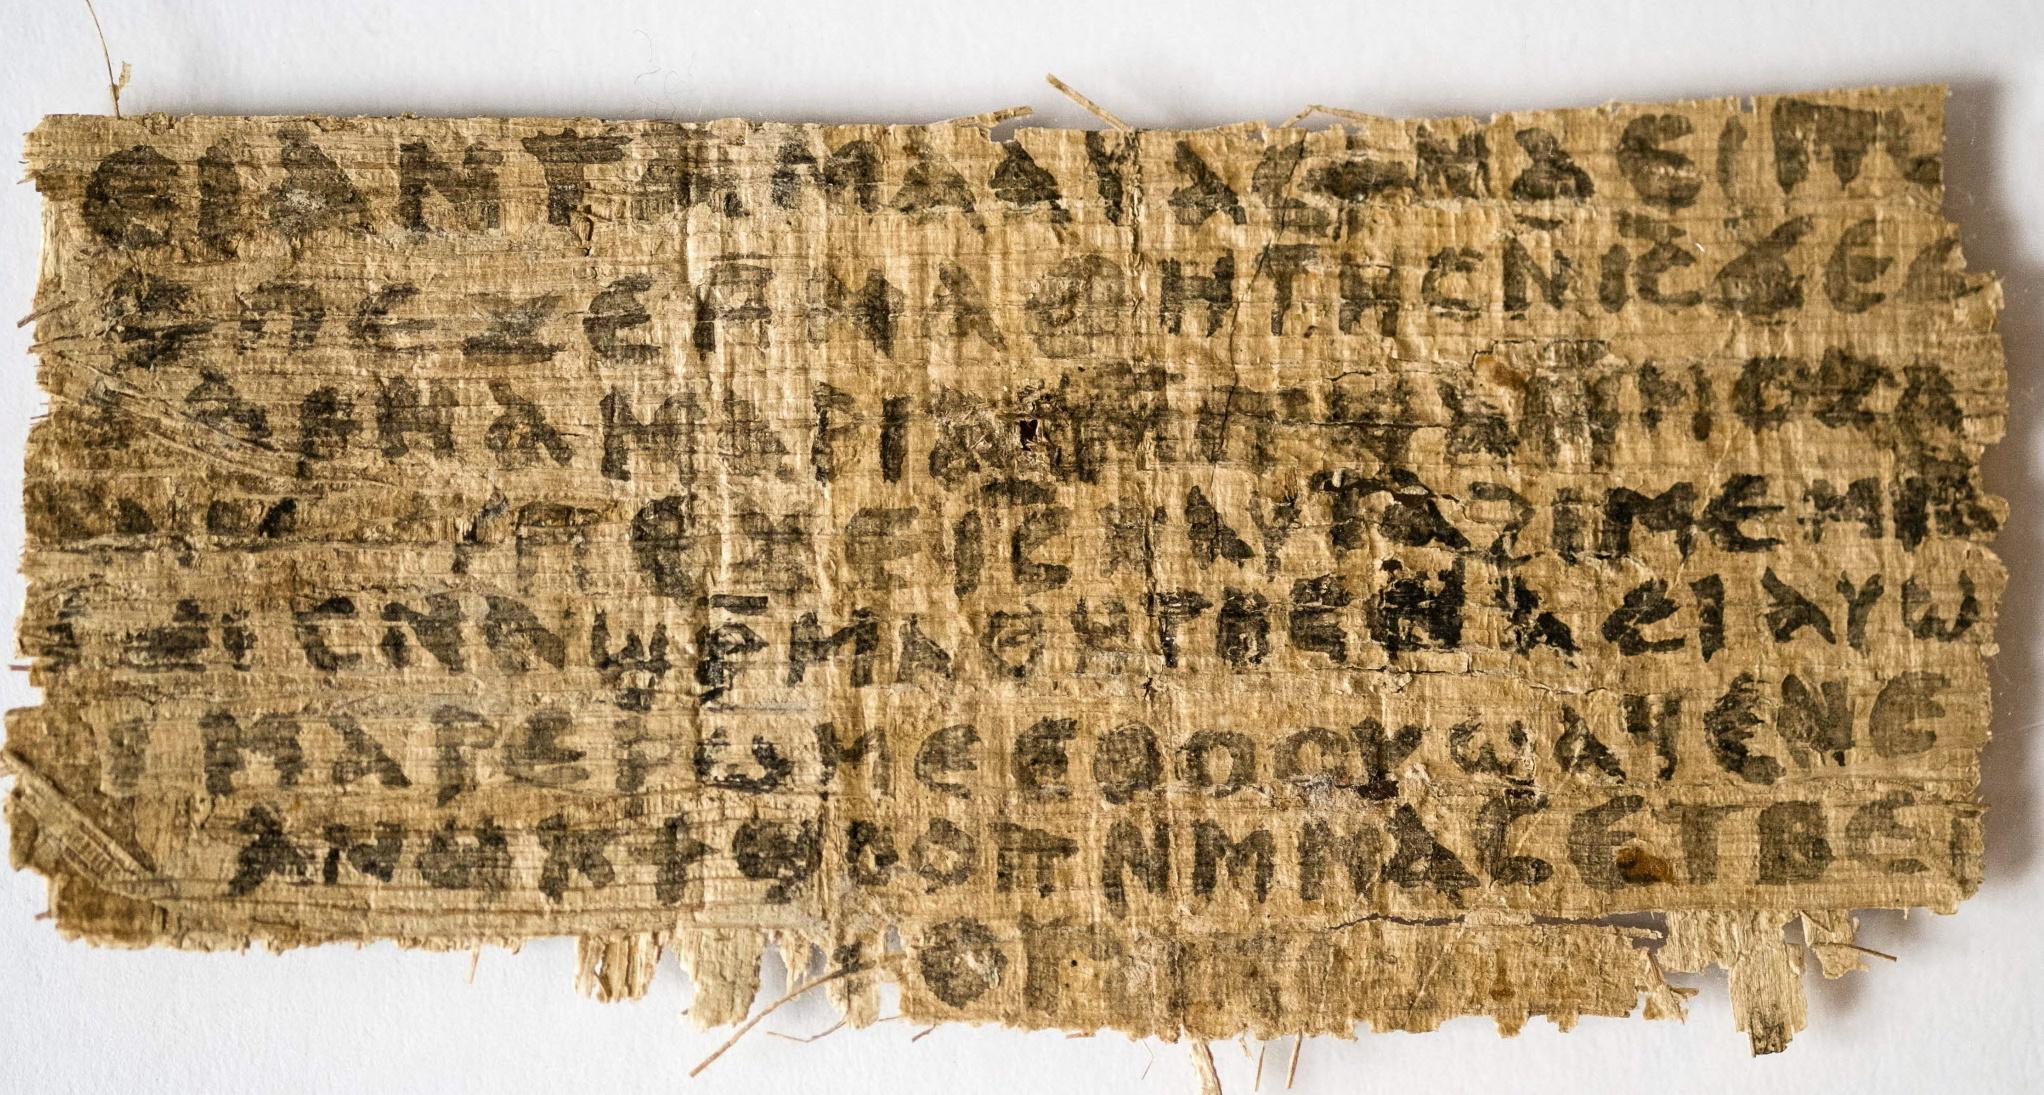 ⲉⲓ ⲁⲛ ⲧⲁⲙⲁⲁⲩ ⲁⲥϯ ⲛⲁⲉⲓ ⲡⲱ
ⲡⲉϫⲉ ⲙ̄ⲙⲁⲑⲏⲧⲏⲥ ⲛ̄ⲓ̄ⲥ̄ ϫⲉ ⲥ
ⲁⲣⲛⲁ ⲙⲁⲣⲓⲁⲙ ⲙ̄ⲡϣⲁ ⲙ̄ⲙⲟⲥ ⲁ
ⲡⲉϫⲉ ⲓ̄ⲥ̄ ⲛⲁⲩ ⲧⲁϩⲓⲙⲉ ⲙⲛ̄
ⲥⲛⲁϣ ⲣ̄ⲙⲁⲑⲏⲧⲏⲥ ⲛⲁⲉⲓ ⲁⲩⲱ
ⲓ ⲙⲁⲣⲉ ⲣⲱⲙⲉ ⲉⲑⲟⲟⲩ ϣⲁϥⲉ ⲛⲉ
ⲁⲛⲟⲕ ϯϣⲟⲟⲡ ⲛⲙ̄ⲙⲁⲥ ⲉⲧⲃⲉ